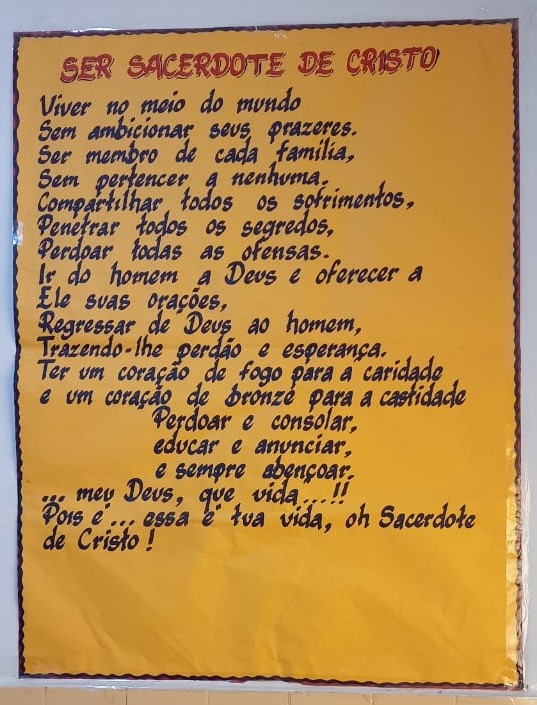 SER SACERDOTE DE CRISTO
Viver no meio do mundo
Sem ambicionar seus prazeres.
Ser membro de cada família,
Sem pertencer a nenhuma.
Compartilhar todos os sofrimentos,
Penetrar todos os segredos,
Perdoar todas as ofensas.
Ir do homem a Deus e oferecer a
Ele suas orações,
Regressar de Deus ao homem,
Trazendo-lhe perdão e esperança.
Ter um coração de fogo para a caridade
e um coração de bronze para a castidade
Perdoar e consolar,
educar e anunciar,
e sempre abençoar.
... meu Deus, que vida...!!
Pois é... essa é tua vida, oh Sacerdote
de Cristo!